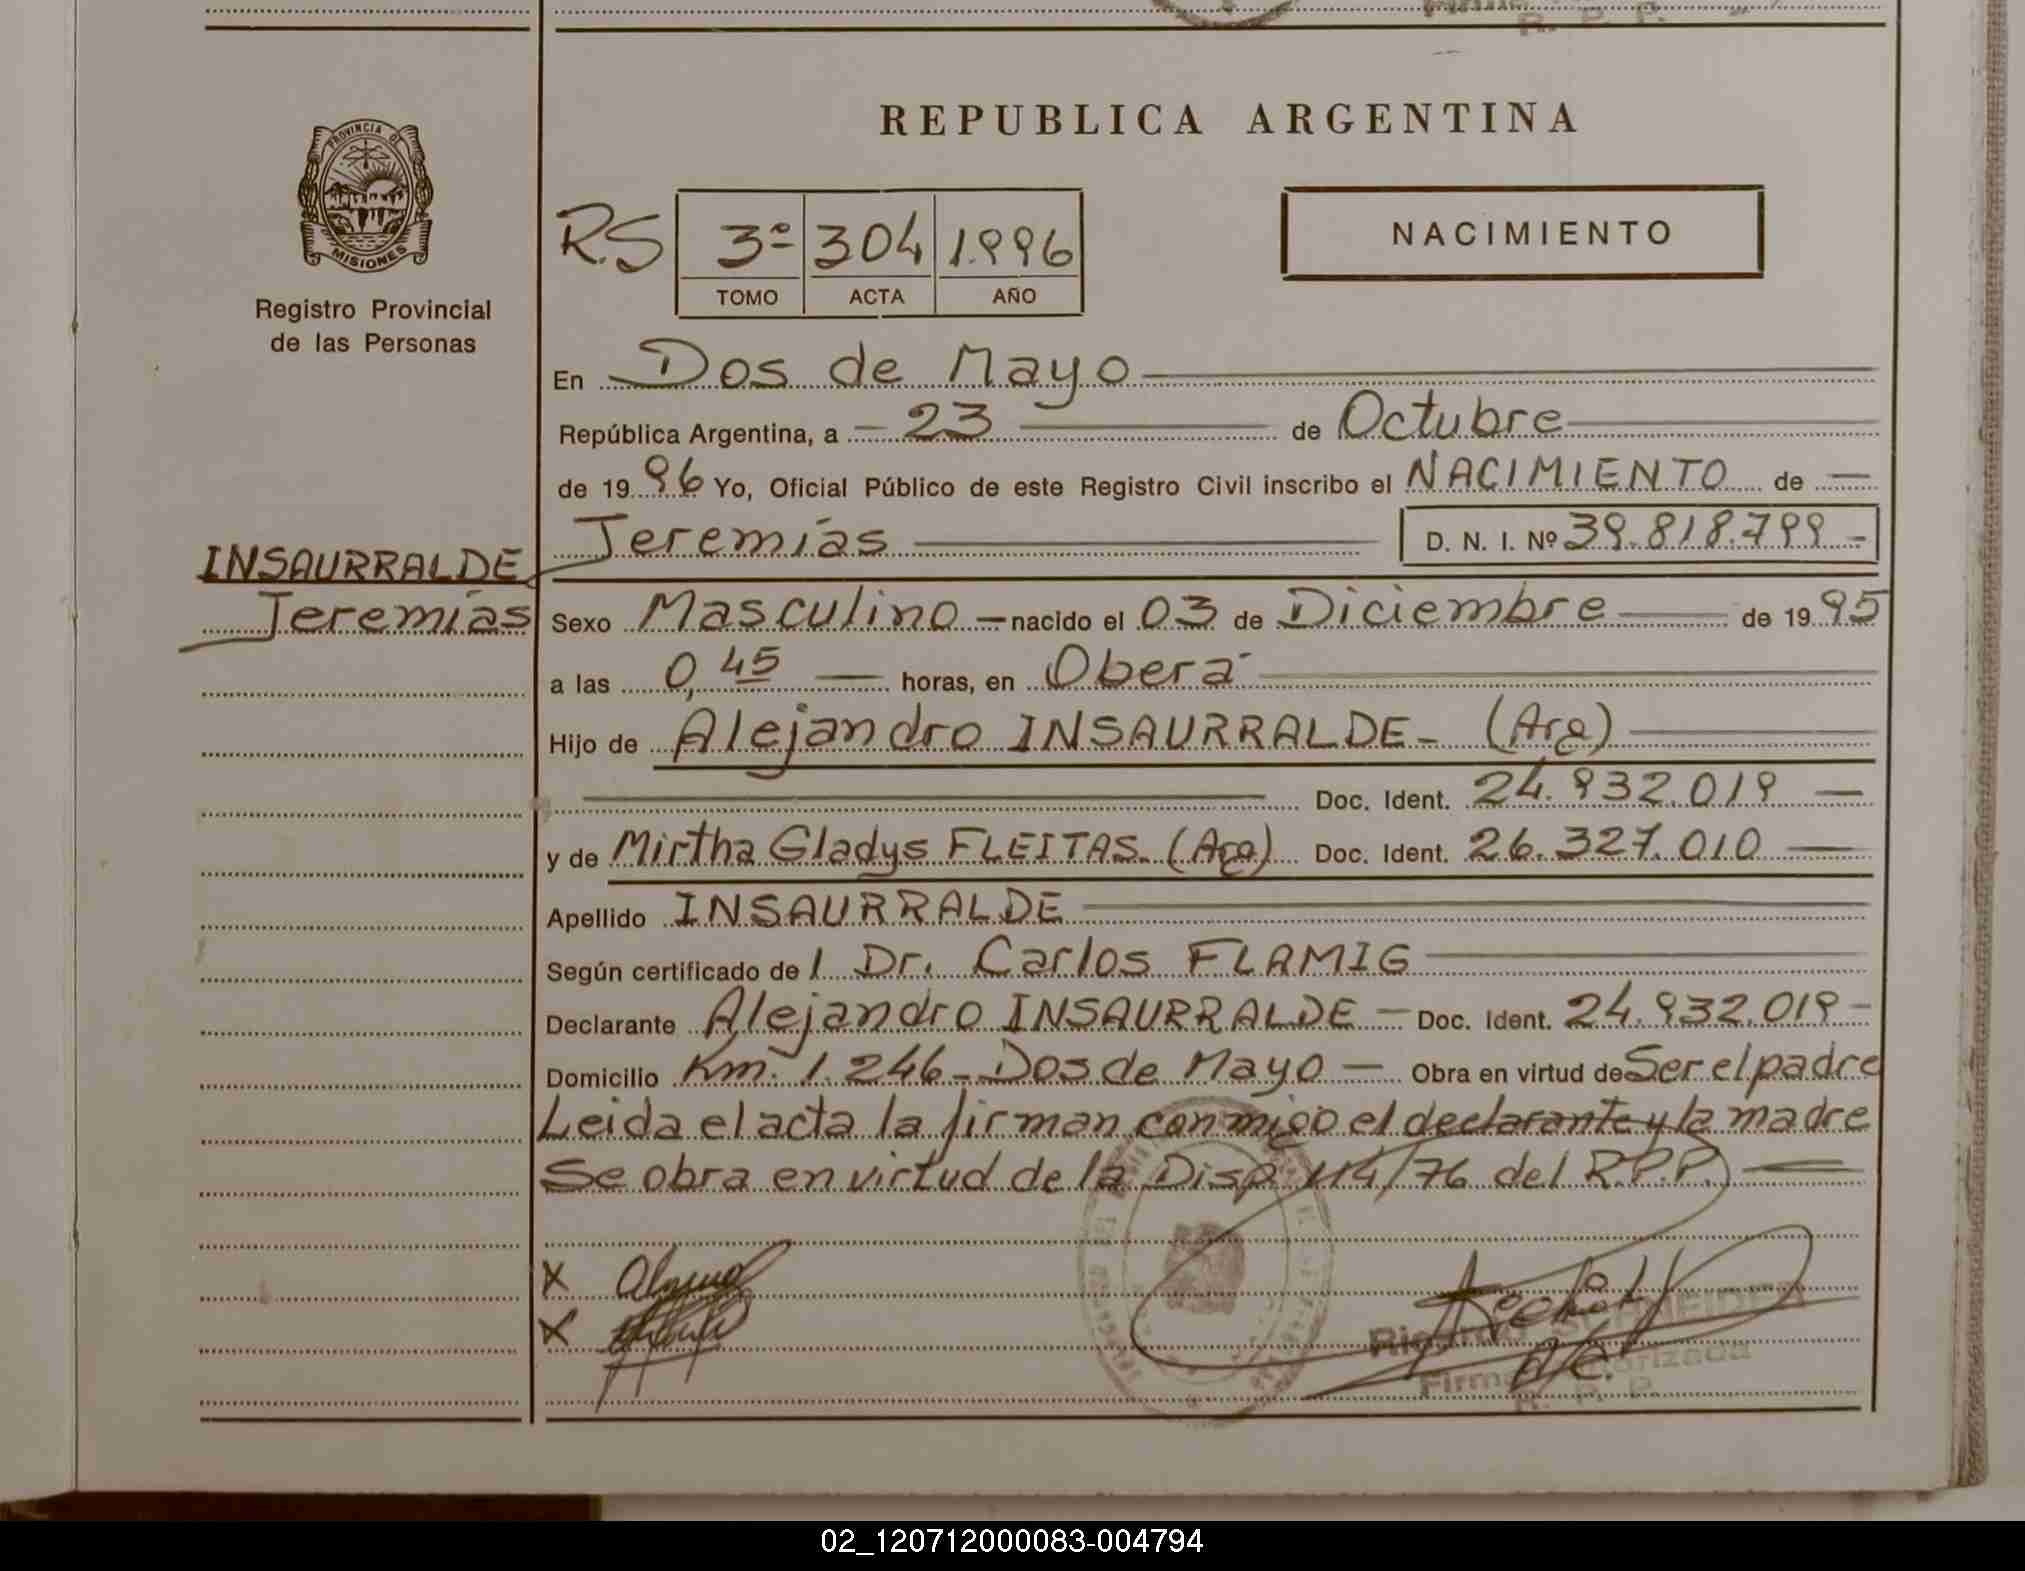 REPUBLICA ARGENTINA
PROVINCIA DE
MISIONES
Registro Provincial
de las Personas
R.S 3º 304 1.996
TOMO ACTA AÑO
NACIMIENTO
En Dos de Mayo
República Argentina, a 23 de Octubre
de 1996 Yo, Oficial Público de este Registro Civil inscribo el NACIMIENTO de
Jeremías D. N. I. Nº 39.818.799
INSAURRALDE
Jeremías
Sexo Masculino nacido el 03 de Diciembre de 1995
a las 0,45 horas, en Oberá
Hijo de Alejandro INSAURRALDE - (Arg)
Doc. Ident. 24.932.019
y de Mirtha Gladys FLEITAS. (Arg) Doc. Ident. 26.327.010
Apellido INSAURRALDE
Según certificado de 1 Dr. Carlos FLAMIG
Declarante Alejandro INSAURRALDE - Doc. Ident. 24.932.019-
Domicilio Km. 1.246 - Dos de Mayo - Obra en virtud de Ser el padre
Leida el acta la firman conmigo el declarante y la madre
Se obra en virtud de la Disp. 114/76 del R.P.P.
X
X
Firma autorizada
R. P. P.
02_120712000083-004794